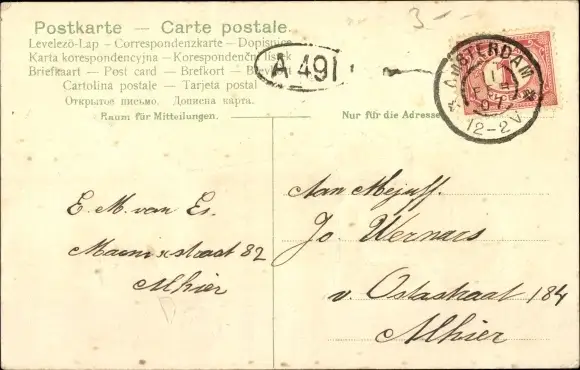 Postkarte — Carte postale.
Levelező-Lap – Correspondenzkarte – Dopisnice
Karta korespondencyjna – Korespondenční lístek
Briefkaart – Post card – Brefkort – Brevkort
Cartolina postale – Tarjeta postal
Открытое письмо. Дописна карта.
Raum für Mitteilungen.
Nur für die Adresse
3 –
A 491
AMSTERDAM
12-2V
1
E. M. van Es.
82
Alhier
Aan Mejuff.
Jo Wernars
v. Ostastraat 184
Alhier